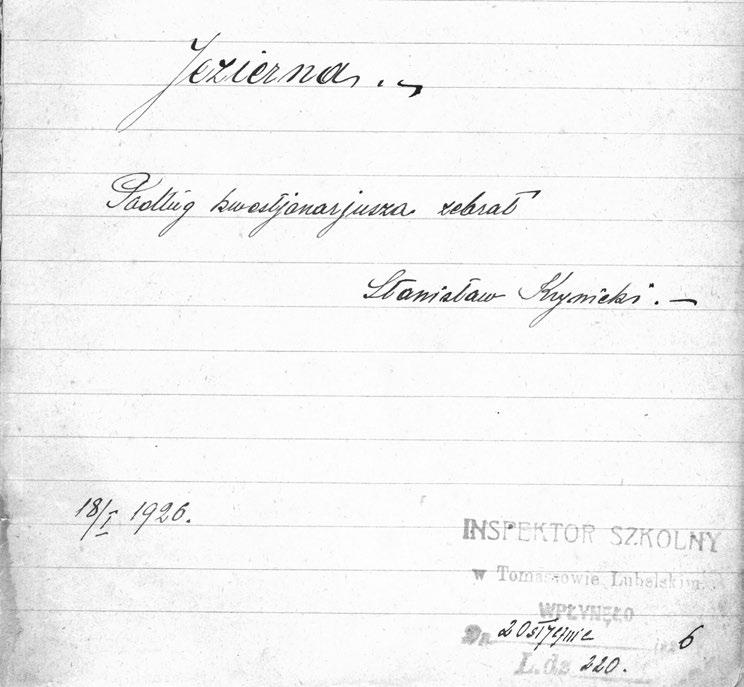 Jezierna . ~
Podług kwestjonarjusza zebrał
Stanisław Krynicki . —
18/I 1926.
INSPEKTOR SZKOLNY
w Tomaszowie Lubelskim
WPŁYNĘŁO
Dn. 20 stycznia 192 6
L. dz 220.